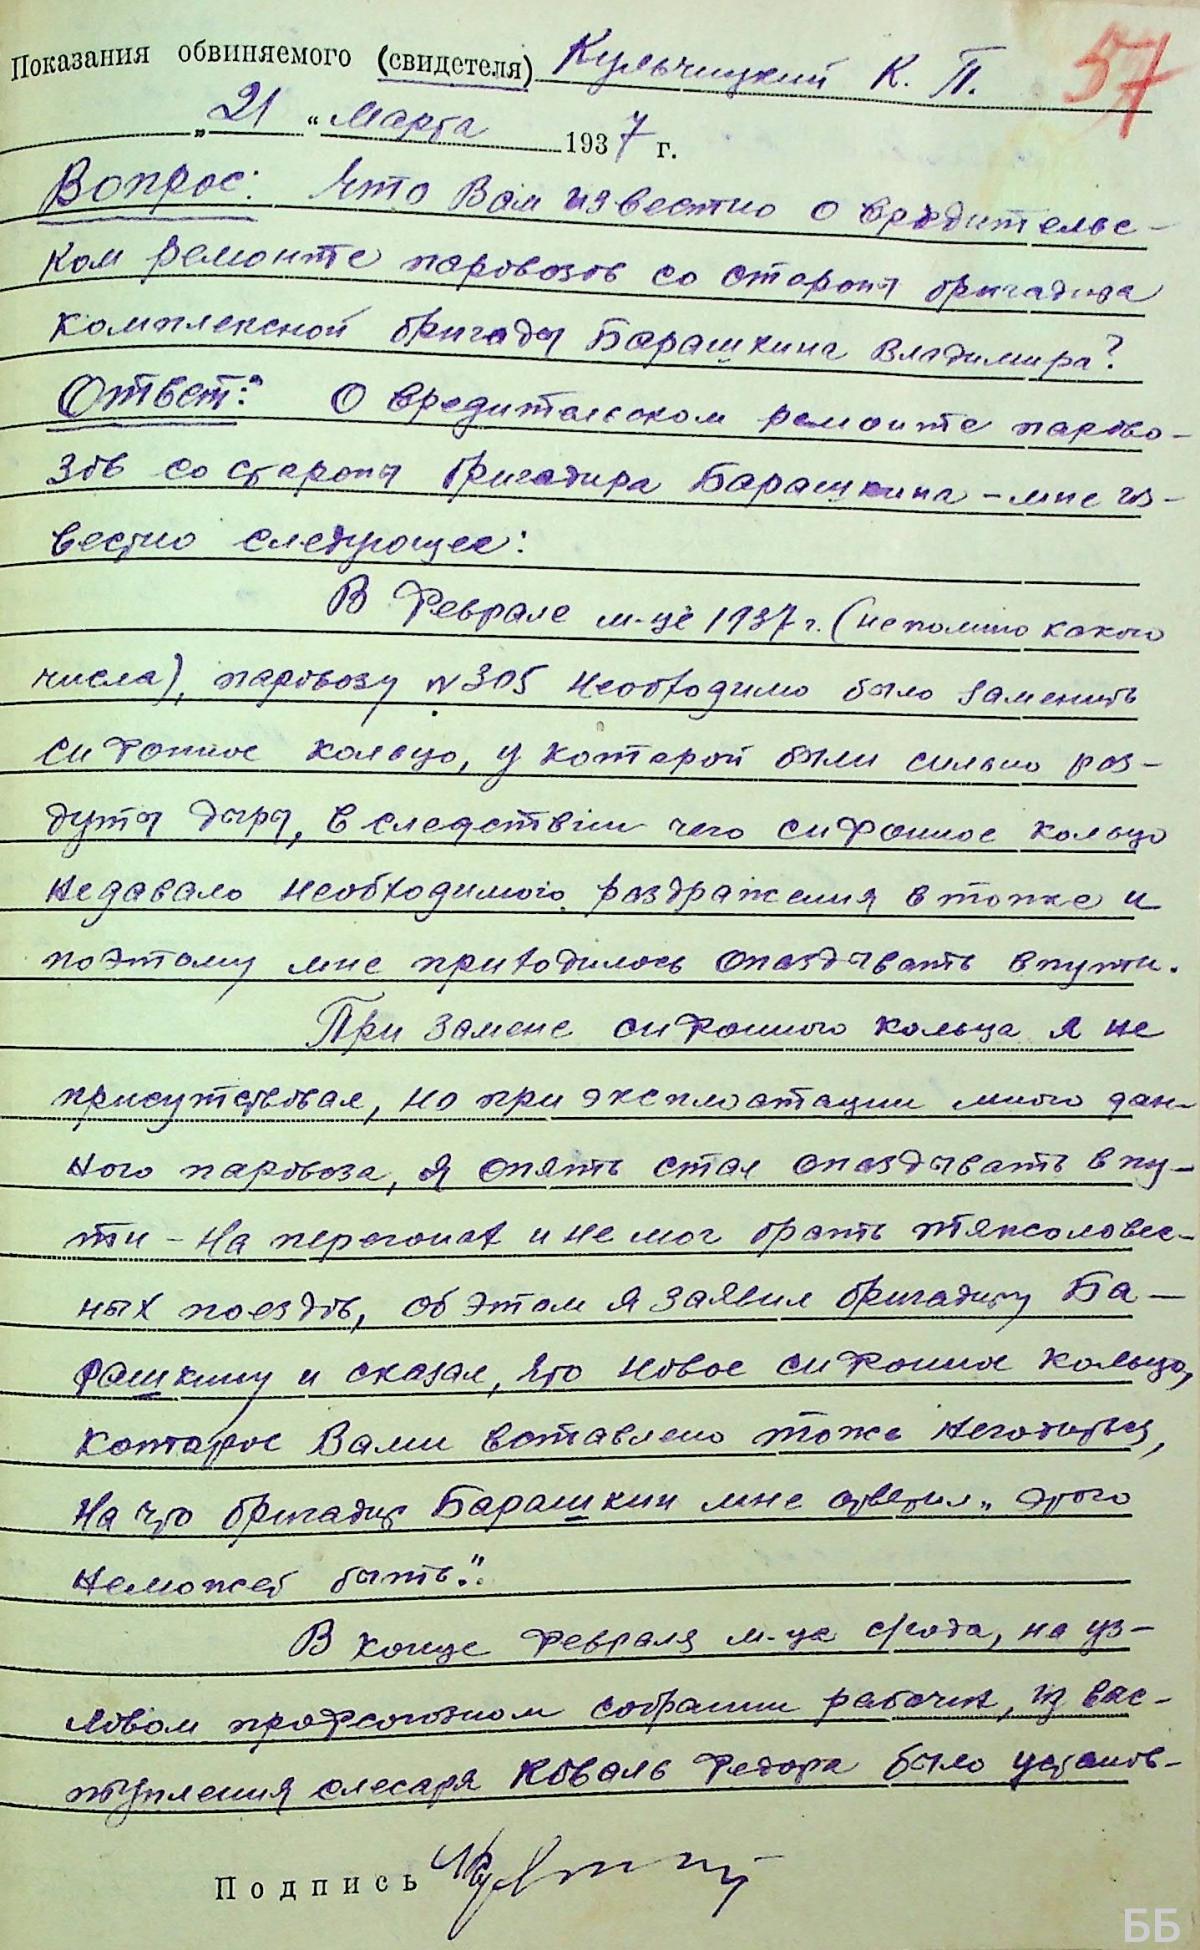 57
Показания обвиняемого (свидетеля) Кульчицкий К. П.
„21" Марта 1937 г.
Вопрос: Что Вам известно о вредительс-
ком ремонте паровозов со стороны бригадира
комплексной бригады Барашкина Владимира?
Ответ: О вредительском ремонте парово-
зов со стороны бригадира Барашкина – мне из-
вестно следующее:
В Феврале м-це 1937 г. (непомню какого
числа), паровозу № 305 необходимо было заменить
сифонное кольцо, у которой были сильно раз-
дуты дыры, вследствии чего сифонное кольцо
недавало необходимого раздражения в топке и
поэтому мне приходилось опаздывать в пути.
При замене сифонного кольца я не
присутствовал, но при эксплоатации мною дан-
ного паровоза, я опять стал опаздывать в пу-
ти – на перегонах и не мог брать тяжоловес-
ных поездов, об этом я заявил бригадиру Ба-
рашкину и сказал, что новое сифонное кольцо,
которое Вами вставлено тоже негодиться,
на что бригадир Барашкин мне ответил „этого
неможет быть".
В конце февраля м-ца с/года, на уз-
ловом профсоюзном собрании рабочих, из выс-
тупления слесаря Коваль Федора было установ-
Подпись
ББ